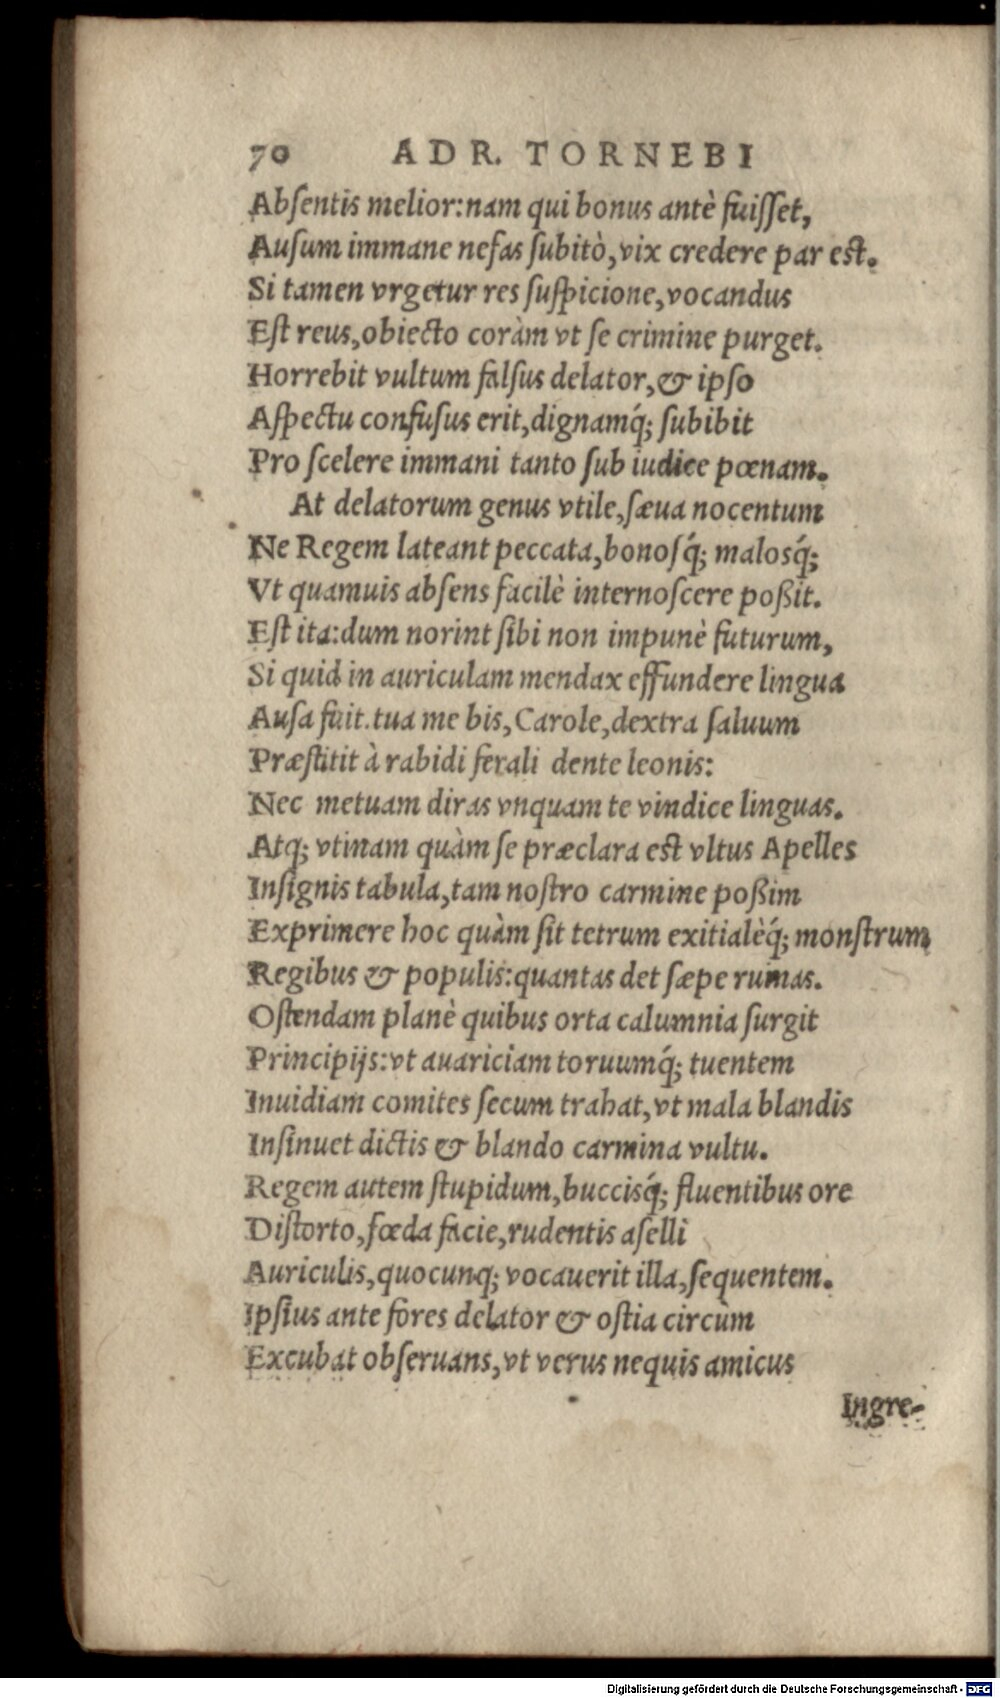 70 ADR. TORNEBI
Abſentis melior:nam qui bonus antè fuiſſet,
Auſum immane nefas ſubitò,vix credere par est.
Si tamen vrgetur res ſuſpicione,vocandus
Eſt reus,obiecto coràm vt ſe crimine purget.
Horrebit vultum falſus delator,& ipſo
Aſpectu confuſus erit,dignamq́; ſubibit
Pro ſcelere immani tanto ſub iudice pœnam.
At delatorum genus vtile,ſæua nocentum
Ne Regem lateant peccata,bonoſq́; malosq́;
Vt quamuis abſens facilè internoſcere poßit.
Eſt ita:dum norint ſibi non impunè futurum,
Si quid in auriculam mendax effundere lingua
Auſa fuit.tua me bis,Carole,dextra ſaluum
Præſtitit à rabidi ferali dente leonis:
Nec metuam diras vnquam te vindice linguas.
Atq; vtinam quàm ſe præclara est vltus Apelles
Inſignis tabula,tam noſtro carmine poßim
Exprimere hoc quàm ſit tetrum exitialèq́; monſtrum
Regibus & populis:quantas det ſæpe ruinas.
Oſtendam planè quibus orta calumnia ſurgit
Principijs:vt auariciam toruumq́; tuentem
Inuidiam comites ſecum trahat,vt mala blandis
Inſinuet dictis & blando carmina vultu.
Regem autem ſtupidum,buccisq́; fluentibus ore
Diſtorto,fœda facie,rudentis aſelli
Auriculis,quocunq; vocauerit illa,ſequentem.
Ipſius ante fores delator & oſtia circùm
Excubat obſeruans,vt verus nequis amicus
Ingre-
Digitalisierung gefördert durch die Deutsche Forschungsgemeinschaft - DFG